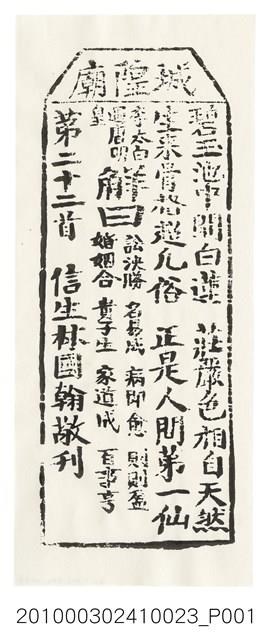 城隍廟
碧玉池中開白蓮 莊嚴色相自天然
生來骨格超凡俗 正是人間第一仙
李太白
遇唐明
皇
解曰
訟決勝 名易成 病即愈 財則盈
婚姻合 貴子生 家道成 百事亨
第二十二首 信生林國翰敬刊
201000302410023_P001